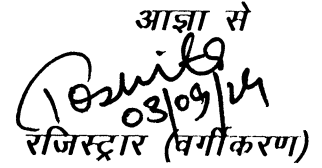 आज्ञा से
03/09/24
रजिस्ट्रार (वर्गीकरण)